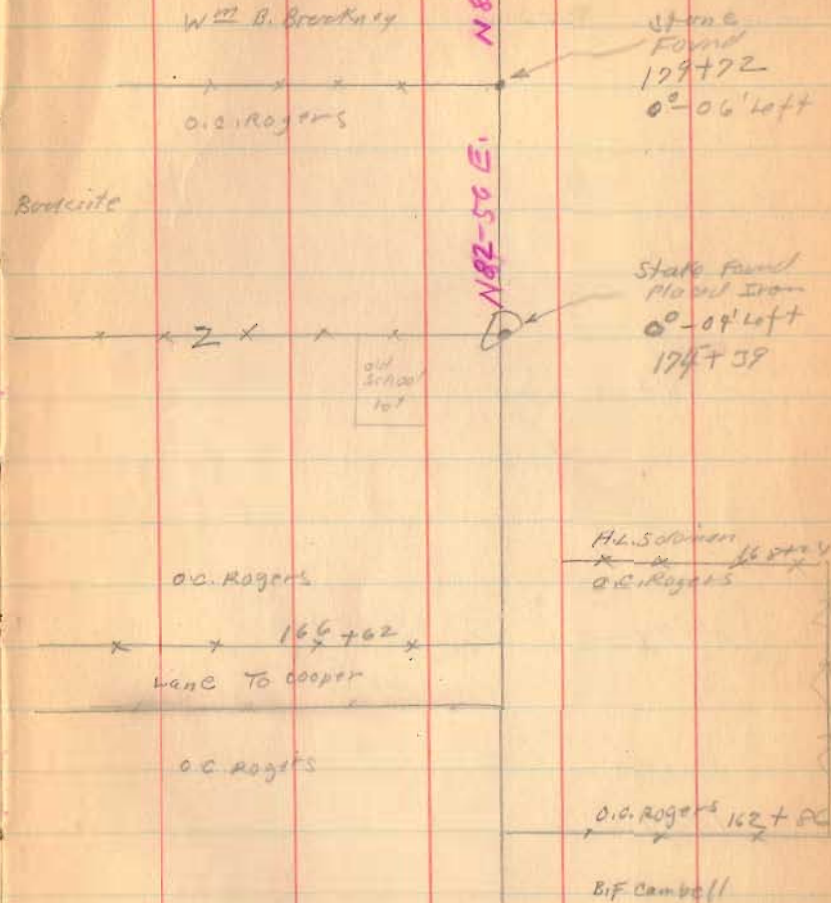 Wm B.
N8
Stone
Found
179+72
0°-06' Left
O.C. Rogers
N82-56 E.
Stake Found
Placed Iron
0°-04' Left
174+39
Z
old
School
lot
H.L. Solomon
168+
O.C. Rogers
O.C. Rogers
166+62
Lane To Cooper
O.C. Rogers
O.C. Rogers 162+80
B.F Cambell